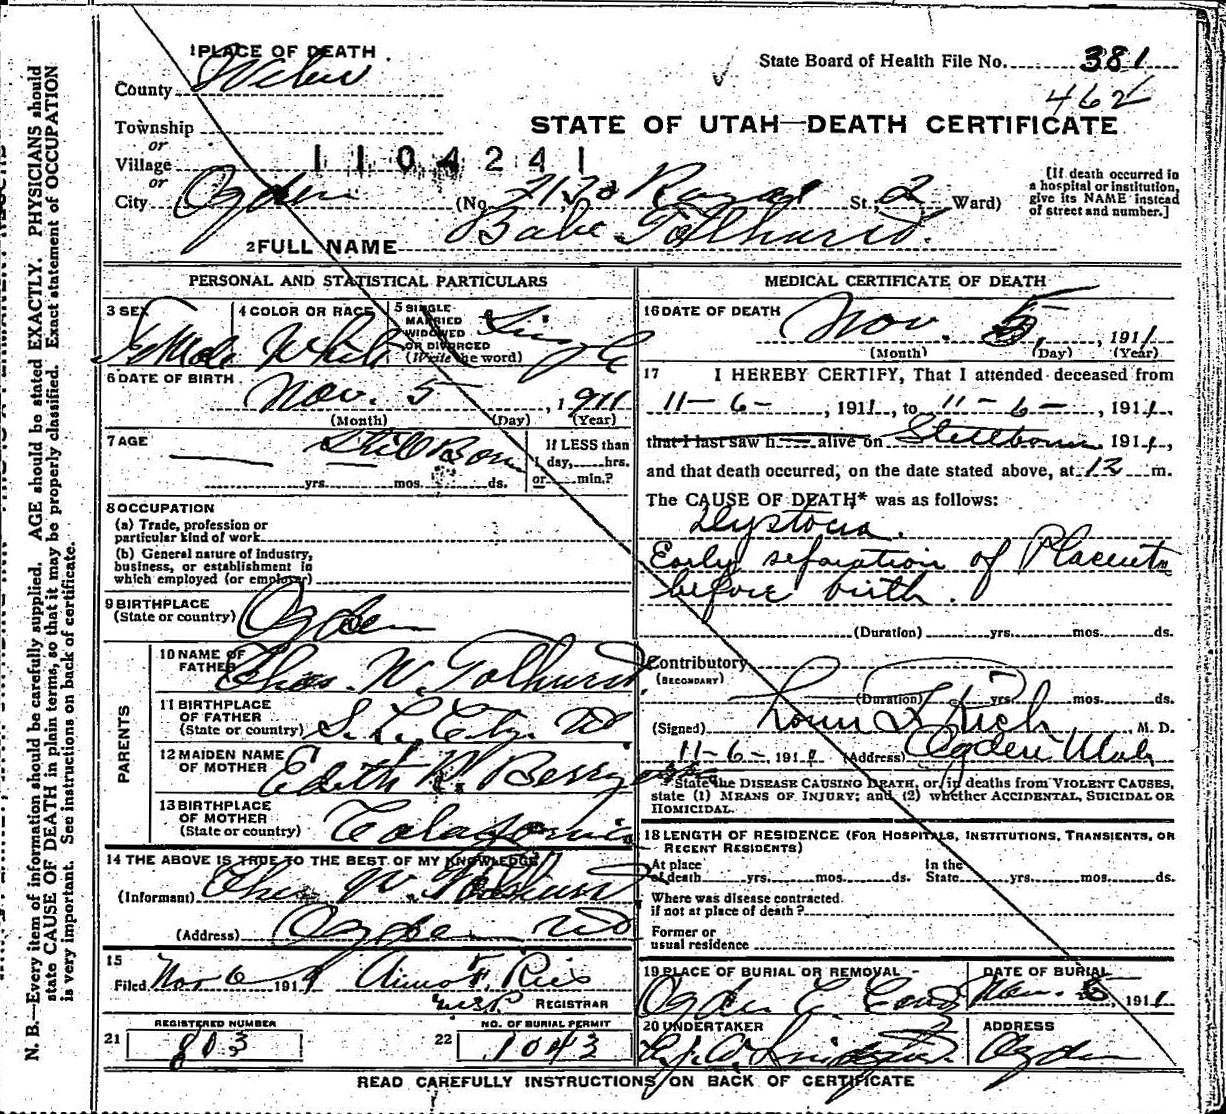 1 PLACE OF DEATH
County Weber
State Board of Health File No. 381
462
Township
or
STATE OF UTAH—DEATH CERTIFICATE
Village
1104241
or
City Ogden (No. St., 2 Ward)
[If death occurred in
a hospital or institution,
give its NAME instead
of street and number.]
2 FULL NAME Babe Tolhurst.
PERSONAL AND STATISTICAL PARTICULARS
3 SEX Female
4 COLOR OR RACE White
5 SINGLE
MARRIED
WIDOWED
OR DIVORCED
(Write the word) Single
6 DATE OF BIRTH Nov. 5, 1911
(Month) (Day) (Year)
7 AGE Still Born
yrs. mos. ds.
If LESS than
1 day, hrs.
or min.?
8 OCCUPATION
(a) Trade, profession or
particular kind of work
(b) General nature of industry,
business, or establishment in
which employed (or employer)
9 BIRTHPLACE
(State or country) Ogden
PARENTS
10 NAME OF
FATHER Chas. W. Tolhurst
11 BIRTHPLACE
OF FATHER
(State or country) S. L. City. Ut
12 MAIDEN NAME
OF MOTHER Edith Berry
13 BIRTHPLACE
OF MOTHER
(State or country)
14 THE ABOVE IS TRUE TO THE BEST OF MY KNOWLEDGE
(Informant) Chas W. Tolhurst
(Address) Ogden Ut
15
Filed Nov 6 1911
REGISTRAR
REGISTERED NUMBER
21 803
NO. OF BURIAL PERMIT
22 1043
MEDICAL CERTIFICATE OF DEATH
16 DATE OF DEATH
Nov. 5, 1911
(Month) (Day) (Year)
17 I HEREBY CERTIFY, That I attended deceased from
11-6-, 1911, to 11-6-, 1911,
that I last saw h alive on Stillborn 1911,
and that death occurred, on the date stated above, at 12 m.
The CAUSE OF DEATH* was as follows:
Dystocia.
Early separation of Placenta
before birth.
(Duration) yrs. mos. ds.
Contributory
(SECONDARY)
(Duration) yrs. mos. ds.
(Signed) Rich, M. D.
11-6-1911 (Address) Ogden Utah
*State the DISEASE CAUSING DEATH, or, in deaths from VIOLENT CAUSES,
state (1) MEANS OF INJURY; and (2) whether ACCIDENTAL, SUICIDAL OR
HOMICIDAL.
18 LENGTH OF RESIDENCE (FOR HOSPITALS, INSTITUTIONS, TRANSIENTS, OR
RECENT RESIDENTS)
At place
of death yrs. mos. ds.
In the
State yrs. mos. ds.
Where was disease contracted
if not at place of death?
Former or
usual residence
19 PLACE OF BURIAL OR REMOVAL
Ogden C. Cem
DATE OF BURIAL
Nov. 6 1911
20 UNDERTAKER
ADDRESS
Ogden
READ CAREFULLY INSTRUCTIONS ON BACK OF CERTIFICATE
N. B.—Every item of information should be carefully supplied. AGE should be stated EXACTLY. PHYSICIANS should
state CAUSE OF DEATH in plain terms, so that it may be properly classified. Exact statement of OCCUPATION
is very important. See instructions on back of certificate.